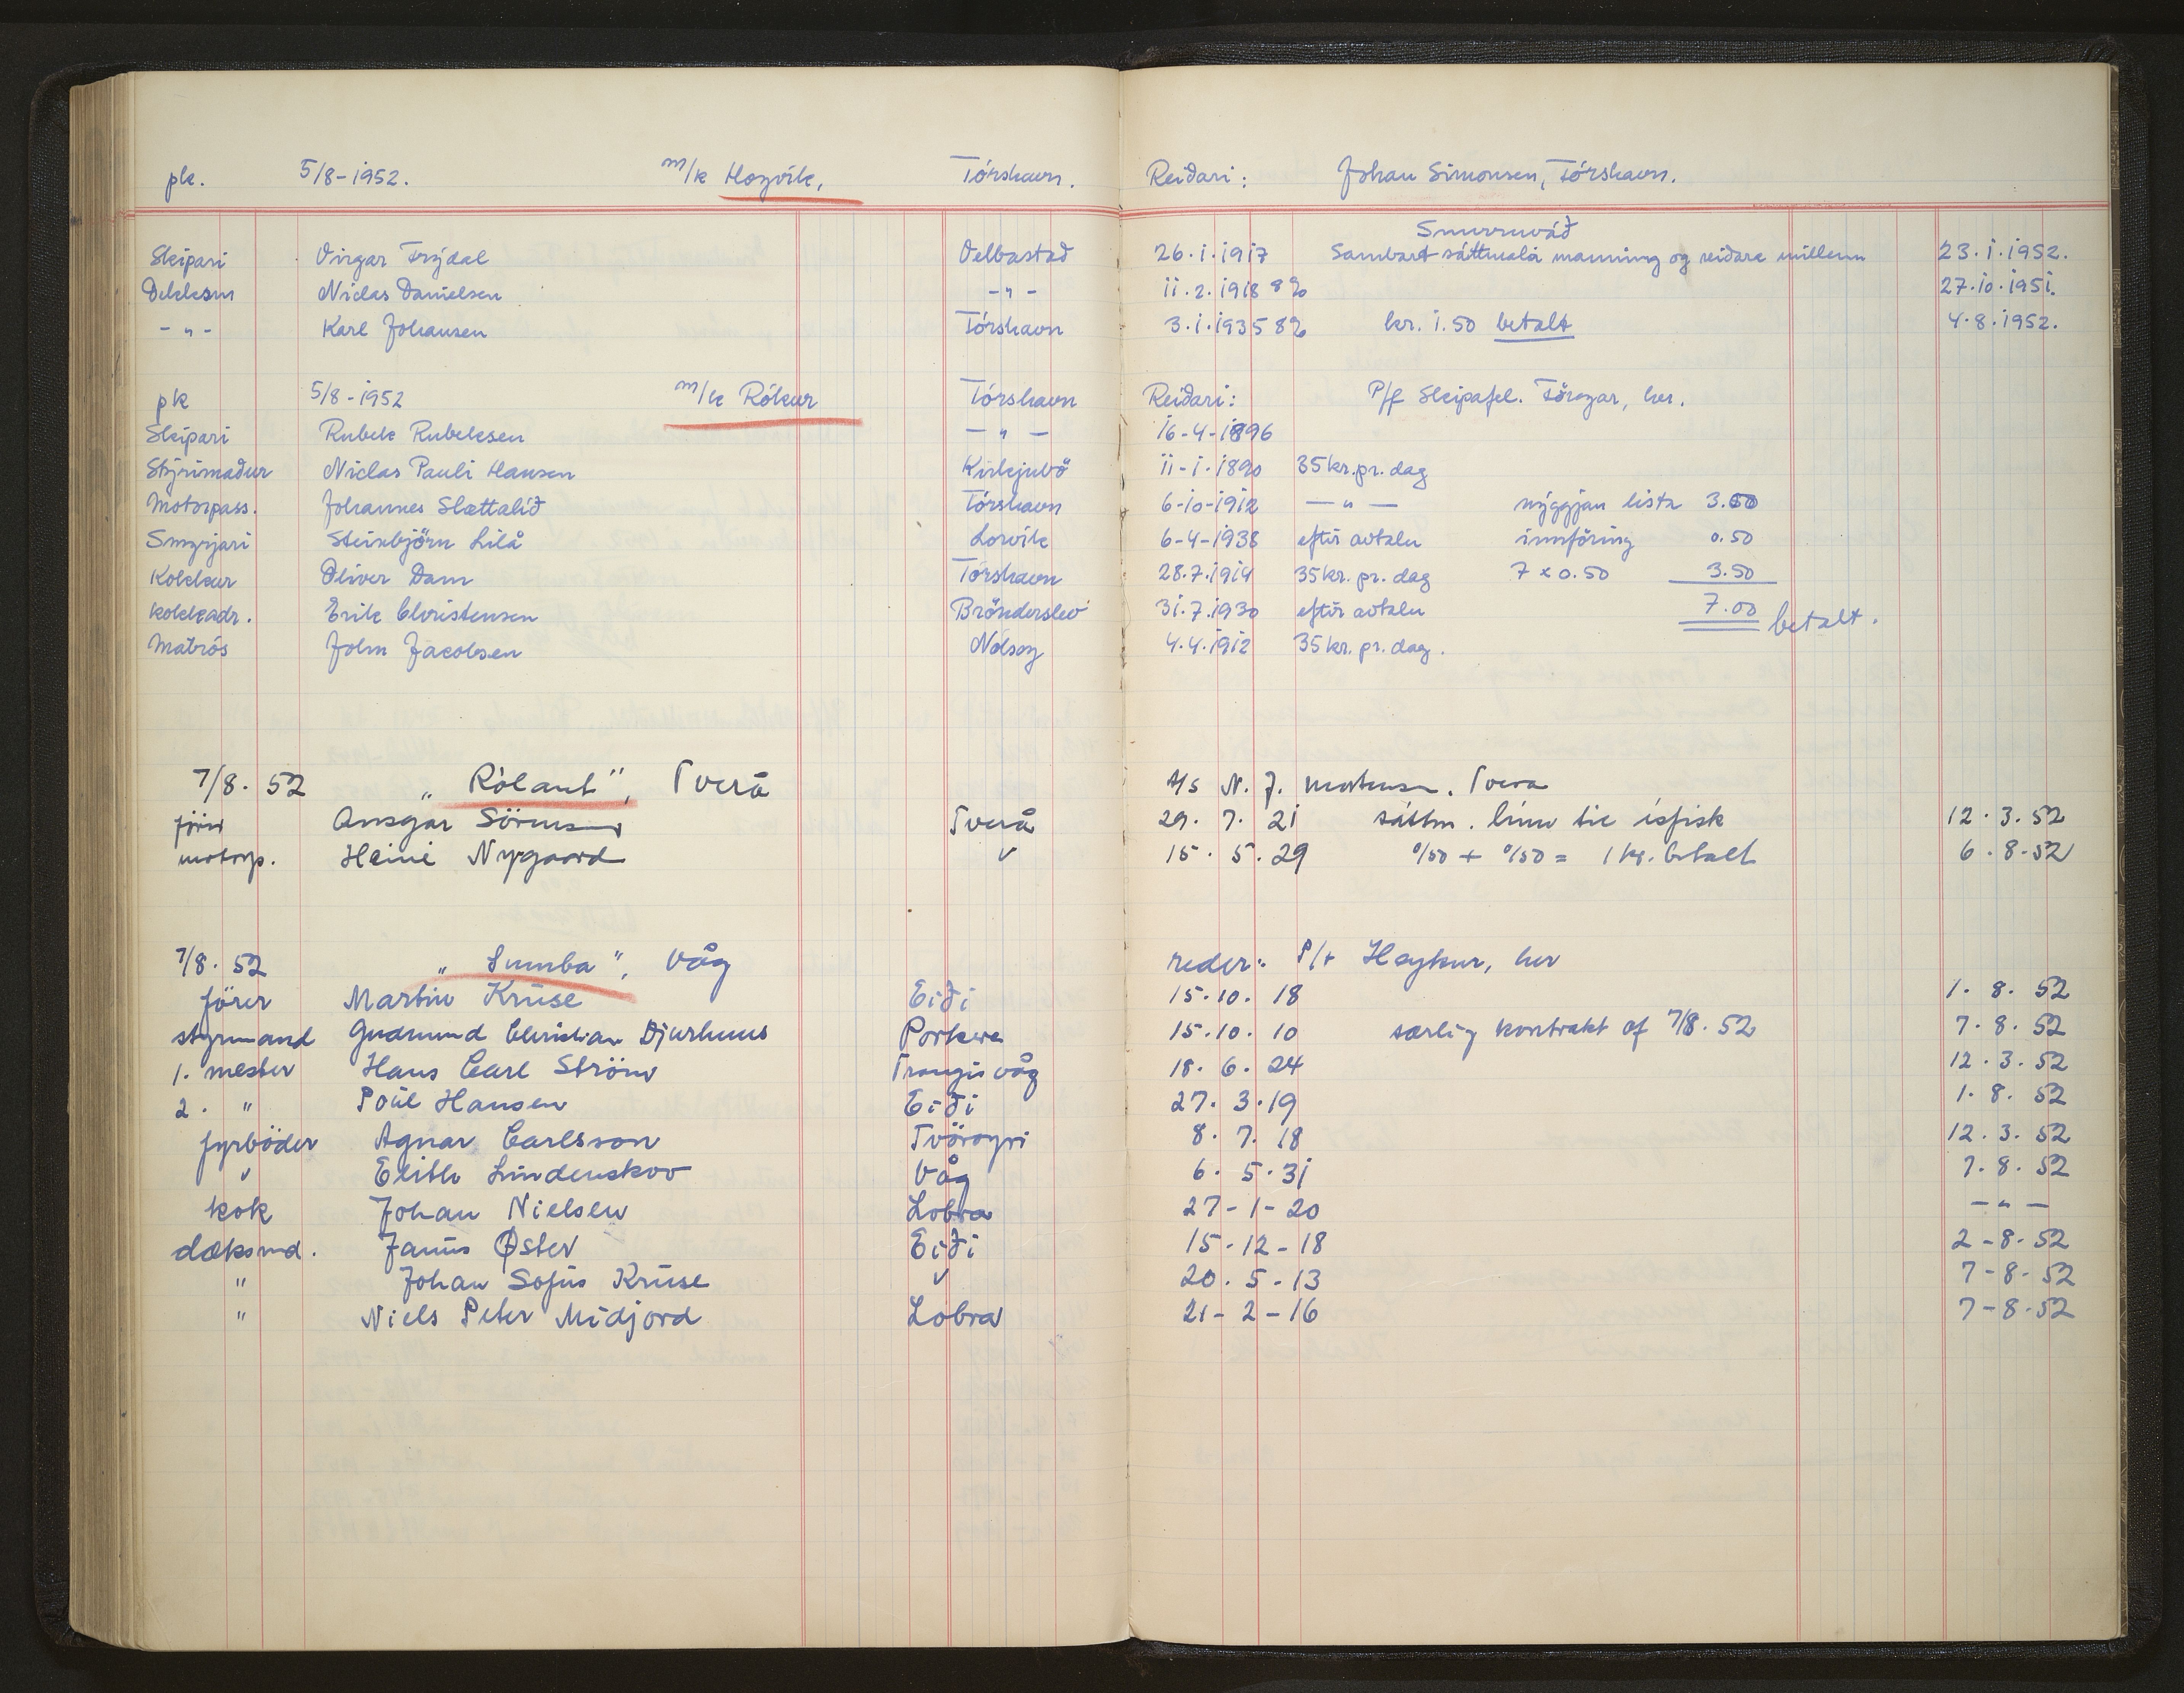 pk. 5/8-1952. m/k Hoyvík, Tórshavn. Reiðari: Johan Simonsen, Tórshavn.
Snurruváð
Skipari Virgar Trýdal Velbastað 26.1.1917 Sambart sáttmála manning og reiðara millum 23.1.1952.
Dekksm Niclas Danielsen -"- 11.2.1918 8% 27.10.1951.
-"- Karl Johansen Tórshavn 3.1.1935 8% kr. 1.50 betalt 4.8.1952.
pk 5/8-1952 m/k Rókur Tórshavn Reiðari: P/f Skipafel. Föroyar, her.
Skipari Rubek Rubeksen -"- 16-4-1896
Stýrimaður Niclas Pauli Hansen Kirkjubö 11-1-1890 35 kr. pr. dag
Motorpass. Johannes Slættalíð Tórshavn 6-10-1912 -"- nýggjan lista 3.00
Smyrjari Steinbjörn Lilå Lorvík 6-4-1938 eftir avtalu innföring 0.50
Kokkur Oliver Dam Tórshavn 28.7.1914 35 kr. pr. dag 7 x 0.50 3.50
kokkadr. Erik Christensen Brönderslev 31.7.1930 eftir avtalu 7.00 betalt.
Matrós John Jacobsen Nolsoy 4.4.1912 35 kr. pr. dag.
7/8. 52 „Rólant", Tverå A/S N. J. Mortensen. Tverå
förer Ansgar Sörensen Tverå 29. 7. 21 sáttm. línu til ísfisk 12. 3. 52
motorp. Heini Nygaard " 15. 5. 29 0/50 + 0/50 = 1 kr. betalt 6. 8-52
7/8. 52 „Sumba", Våg reder: P/f Hoykur, her
förer Martin Kruse Eiði 15. 10. 18 1. 8. 52
styrmand Gudmund Christian Djurhuus Porkere 15. 10. 10 særlig kontrakt af 7/8. 52 7. 8. 52
1. mester Hans Carl Ström Trongisvåg 18. 6. 24 12. 3. 52
2. " Poul Hansen Eiði 27. 3. 19 1. 8. 52
fyrböder Agnar Carlsson Tvöroyri 8. 7. 18 12. 3. 52
" Elith Lindenskov Våg 6. 5. 31 7. 8. 52
kok Johan Nielsen Lobra 27-1-20 -"-
dæksmd. Janus Øster Eiði 15-12-18 2-8-52
" Johan Sofus Kruse " 20. 5-13 7-8-52
" Niels Peter Midjord Lobra 21-2-16 7-8-52